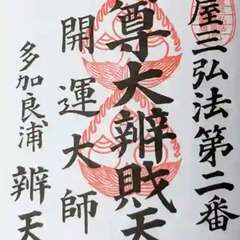 屋三弘法第二番
尊大辨財天
開運大師
多加良浦 辨天